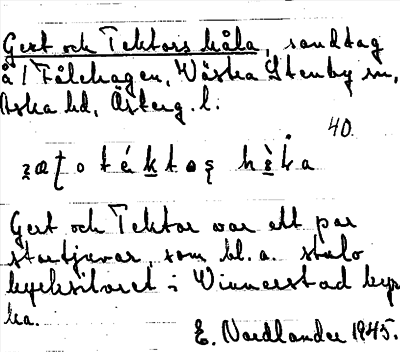 Gert och Tektors håla, sandtag
å 1 Fålehagen, Västra Stenby sn,
Aska hd, Österg. l.
40.
Gert och Tektor var ett par
stortjuvar, som bl. a. stulo
kyrksilvret i Vinnerstad kyr
ka.
E. Nordlander 1945.